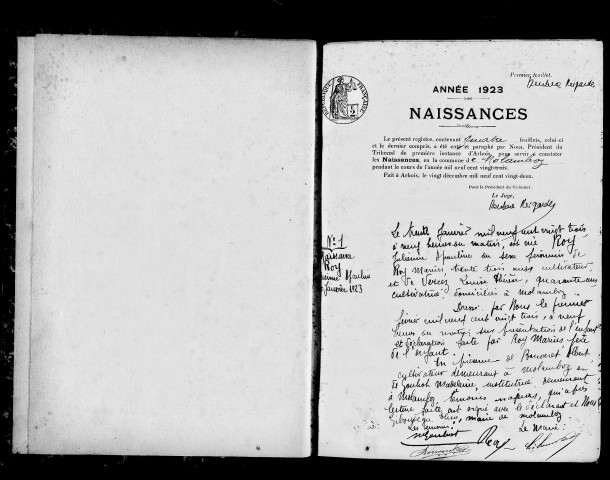 Premier feuillet.
ANNÉE 1923
NAISSANCES
Le présent registre, contenant quatre feuillets, celui-ci
et le dernier compris, a été coté et paraphé par Nous, Président du
Tribunal de première instance d'Arbois, pour servir à constater
les Naissances, en la commune de Molamboz
pendant le cours de l'année mil neuf cent vingt-trois.
Fait à Arbois, le vingt décembre mil neuf cent vingt-deux.
Pour le Président du Tribunal.
Le Juge,
N° 1
Naissance
Roy
Janvier 1923
Le trente Janvier mil neuf cent vingt trois
à neuf heures du matin, est née Roy
Julienne Pauline du sexe féminin de
Roy Marius, trente trois ans, cultivateur,
et de Louise, quarante ans
cultivatrice, domiciliés à Molamboz.
Dressé par Nous le premier
février mil neuf cent vingt trois, à neuf
heures du matin, sur présentation de l'enfant
et déclaration faite par Roy Marius père
de l'enfant.
En présence de Bouveret Albert
cultivateur demeurant à Molamboz et
de Madeleine, institutrice, demeurant
à Molamboz, témoins majeurs, qui après
lecture faite ont signé avec le déclarant et Nous
maire de Molamboz
Les témoins: Le Maire:
Roy